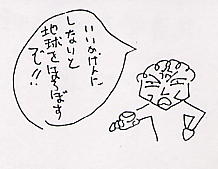 いいかげんに
しないと
地球をほろぼす
ぞ!!